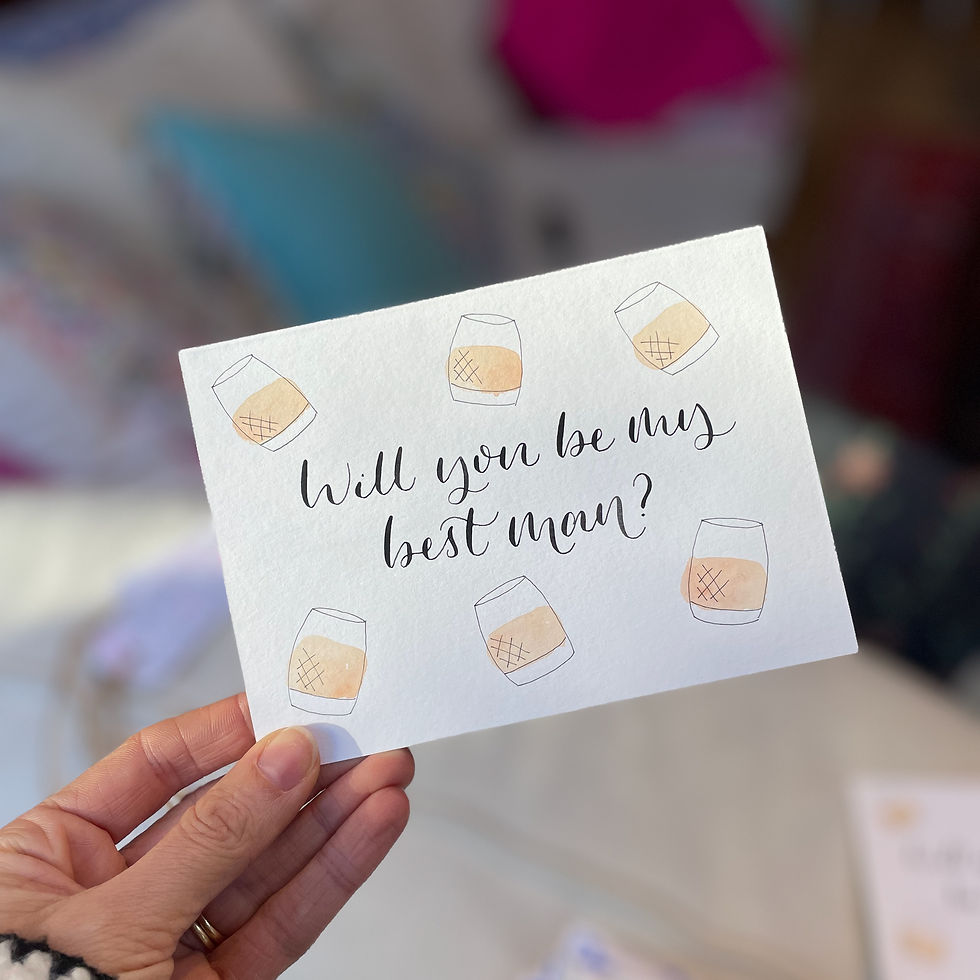 Will you be my
best man?